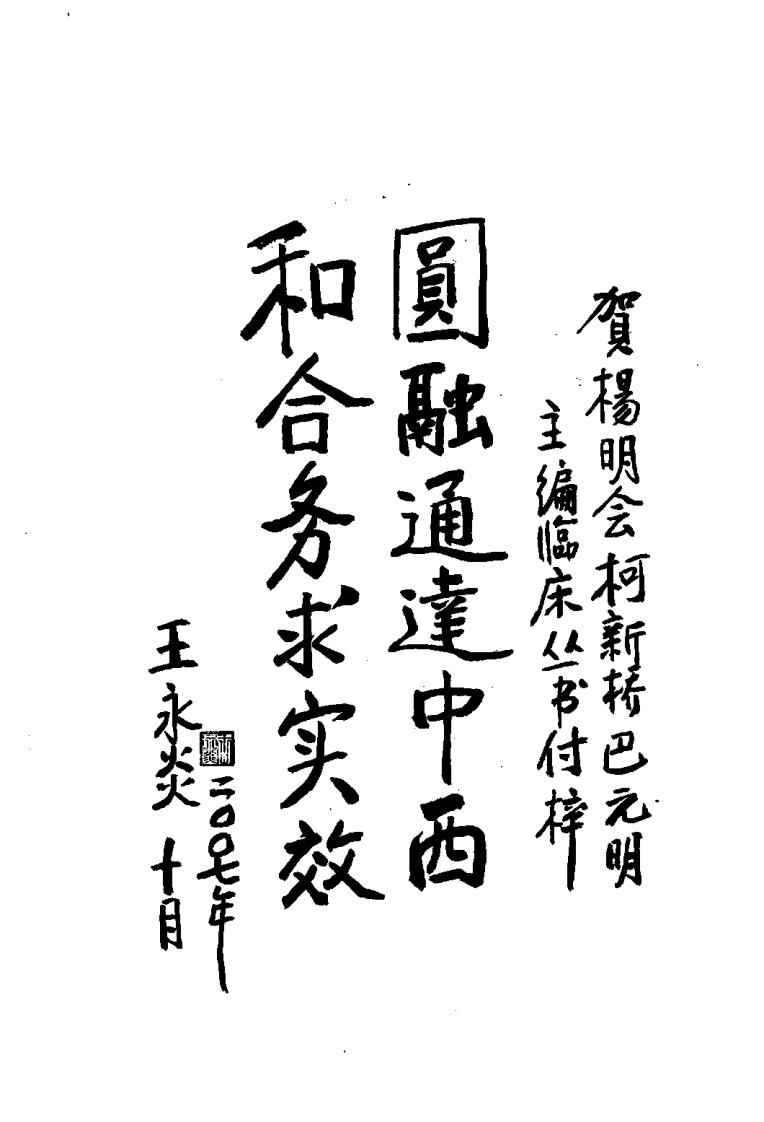 賀楊明会柯新桥巴元明
主编臨床丛书付梓
圓融通達中西
和合务求实效
二〇〇七年
王永炎 十月